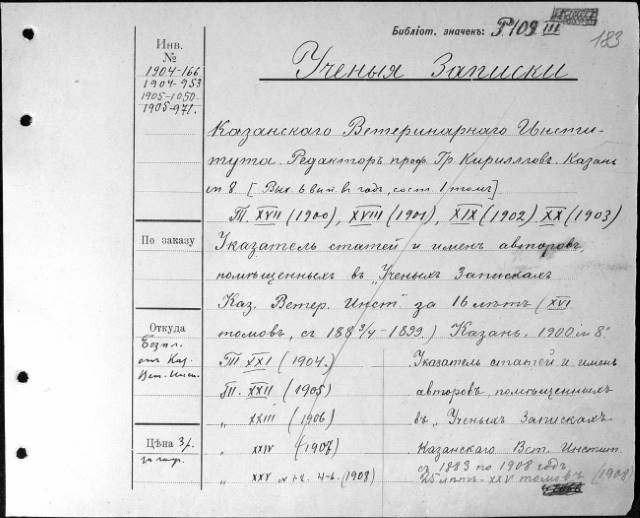 Библіот. значекъ: P.109 III
183
Ученыя Записки
Инв.
№
1904-166
1904-953
1905-1050.
1905-971.
Казанскаго Ветеринарнаго Инсти-
тута. Редакторъ проф. Гр. Кирилловъ. Казань
in 8. [Вых. 6 вып. в годъ, сост. 1 томъ]
Т. XVII (1900), XVIII (1901), XIX (1902) XX (1903)
По заказу
Указатель статей и именъ авторовъ,
помѣщенныхъ въ „Ученыхъ Запискахъ
Каз. Ветер. Инст." за 16 лѣтъ (XVI
томовъ, съ 188 3/4 - 1899.) Казань. 1900. in 8°
Откуда
Безпл.
отъ Каз.
Вет. Инст.
Т. XXI (1904.
Т. XXII (1905)
„ XXIII (1906)
„ XXIV (1907)
„ XXV 4-6. (1908)
Указатель статей и именъ
авторовъ, помѣщенныхъ
въ „Ученыхъ Запискахъ
Казанскаго Вет. Инстит.
съ 1883 по 1908 годъ,
25 лѣтъ - XXV томовъ (1908)
Цѣна 3 р.
за